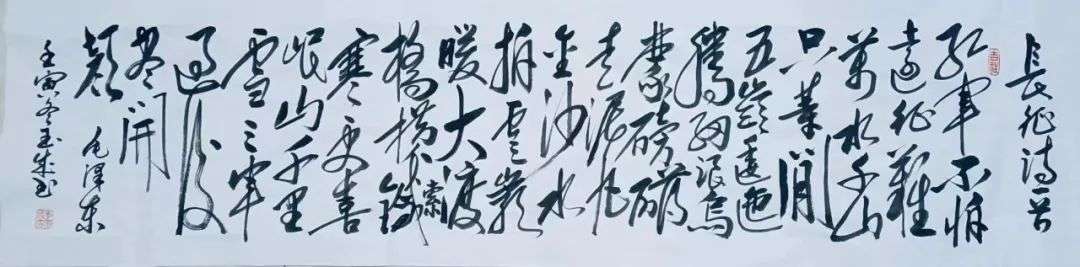 長征诗一首
红軍不怕
遠征難
萬水千山
只等闲
五嶺逶迤
腾细浪烏
蒙磅礴
走泥丸
金沙水
拍雲崖
暖大渡
橋横鐵索
寒更喜
岷山千里
雪三軍
過後
尽開
颜 毛泽东
壬寅冬玉成书